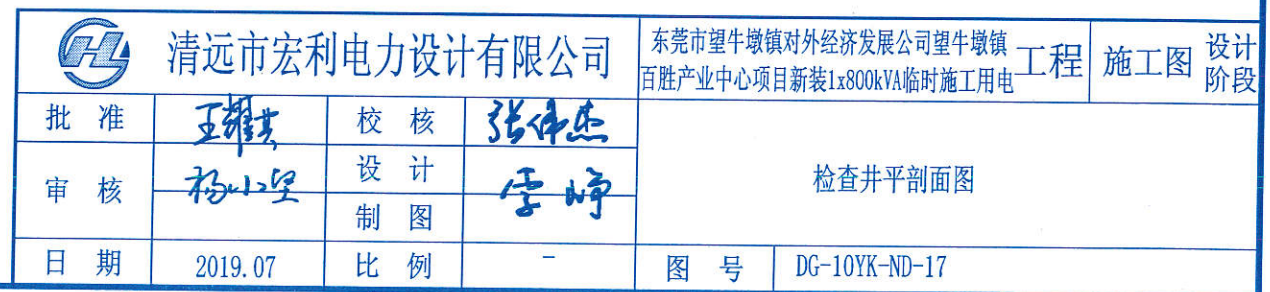 清远市宏利电力设计有限公司
东莞市望牛墩镇对外经济发展公司望牛墩镇
百胜产业中心项目新装1x800kVA临时施工用电
工程
施工图
设计
阶段
批 准
王耀其
校 核
张伟杰
审 核
杨小坚
设 计
制 图
检查井平剖面图
日 期
2019.07
比 例
-
图 号
DG-10YK-ND-17